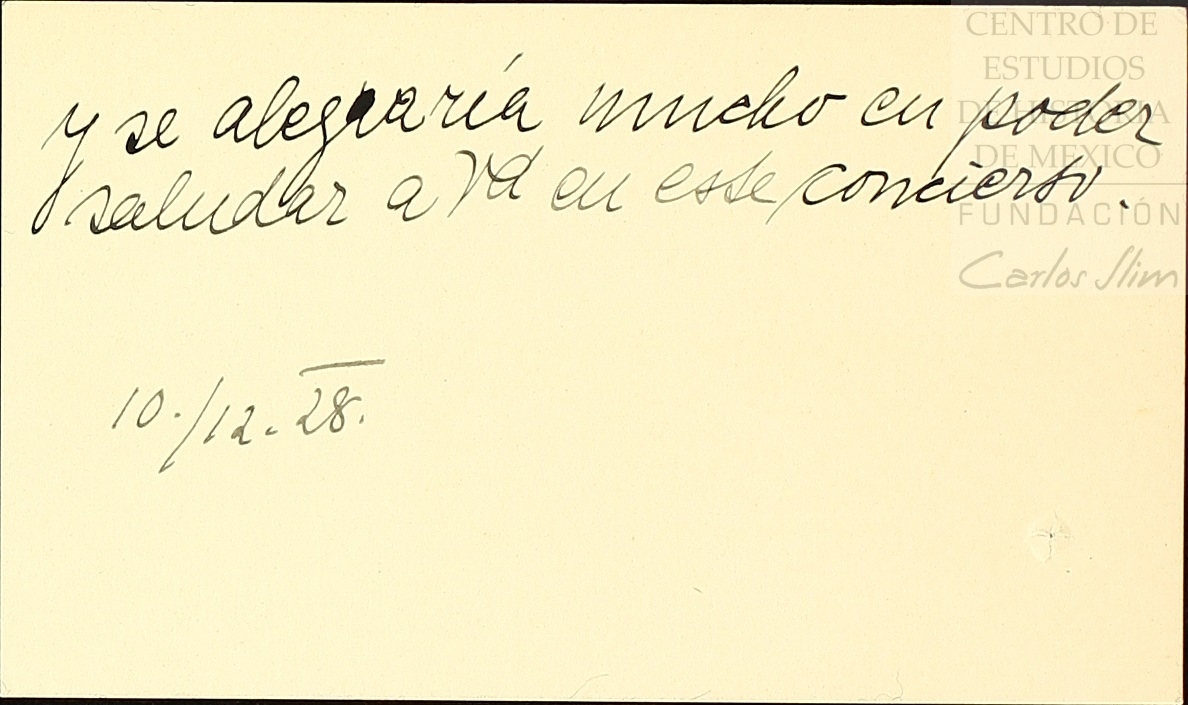 y se alegraría mucho en poder
saludar a Vd en este concierto.
10./12.28.
CENTRO DE
ESTUDIOS
DE HISTORIA
DE MEXICO
FUNDACIÓN
Carlos Slim